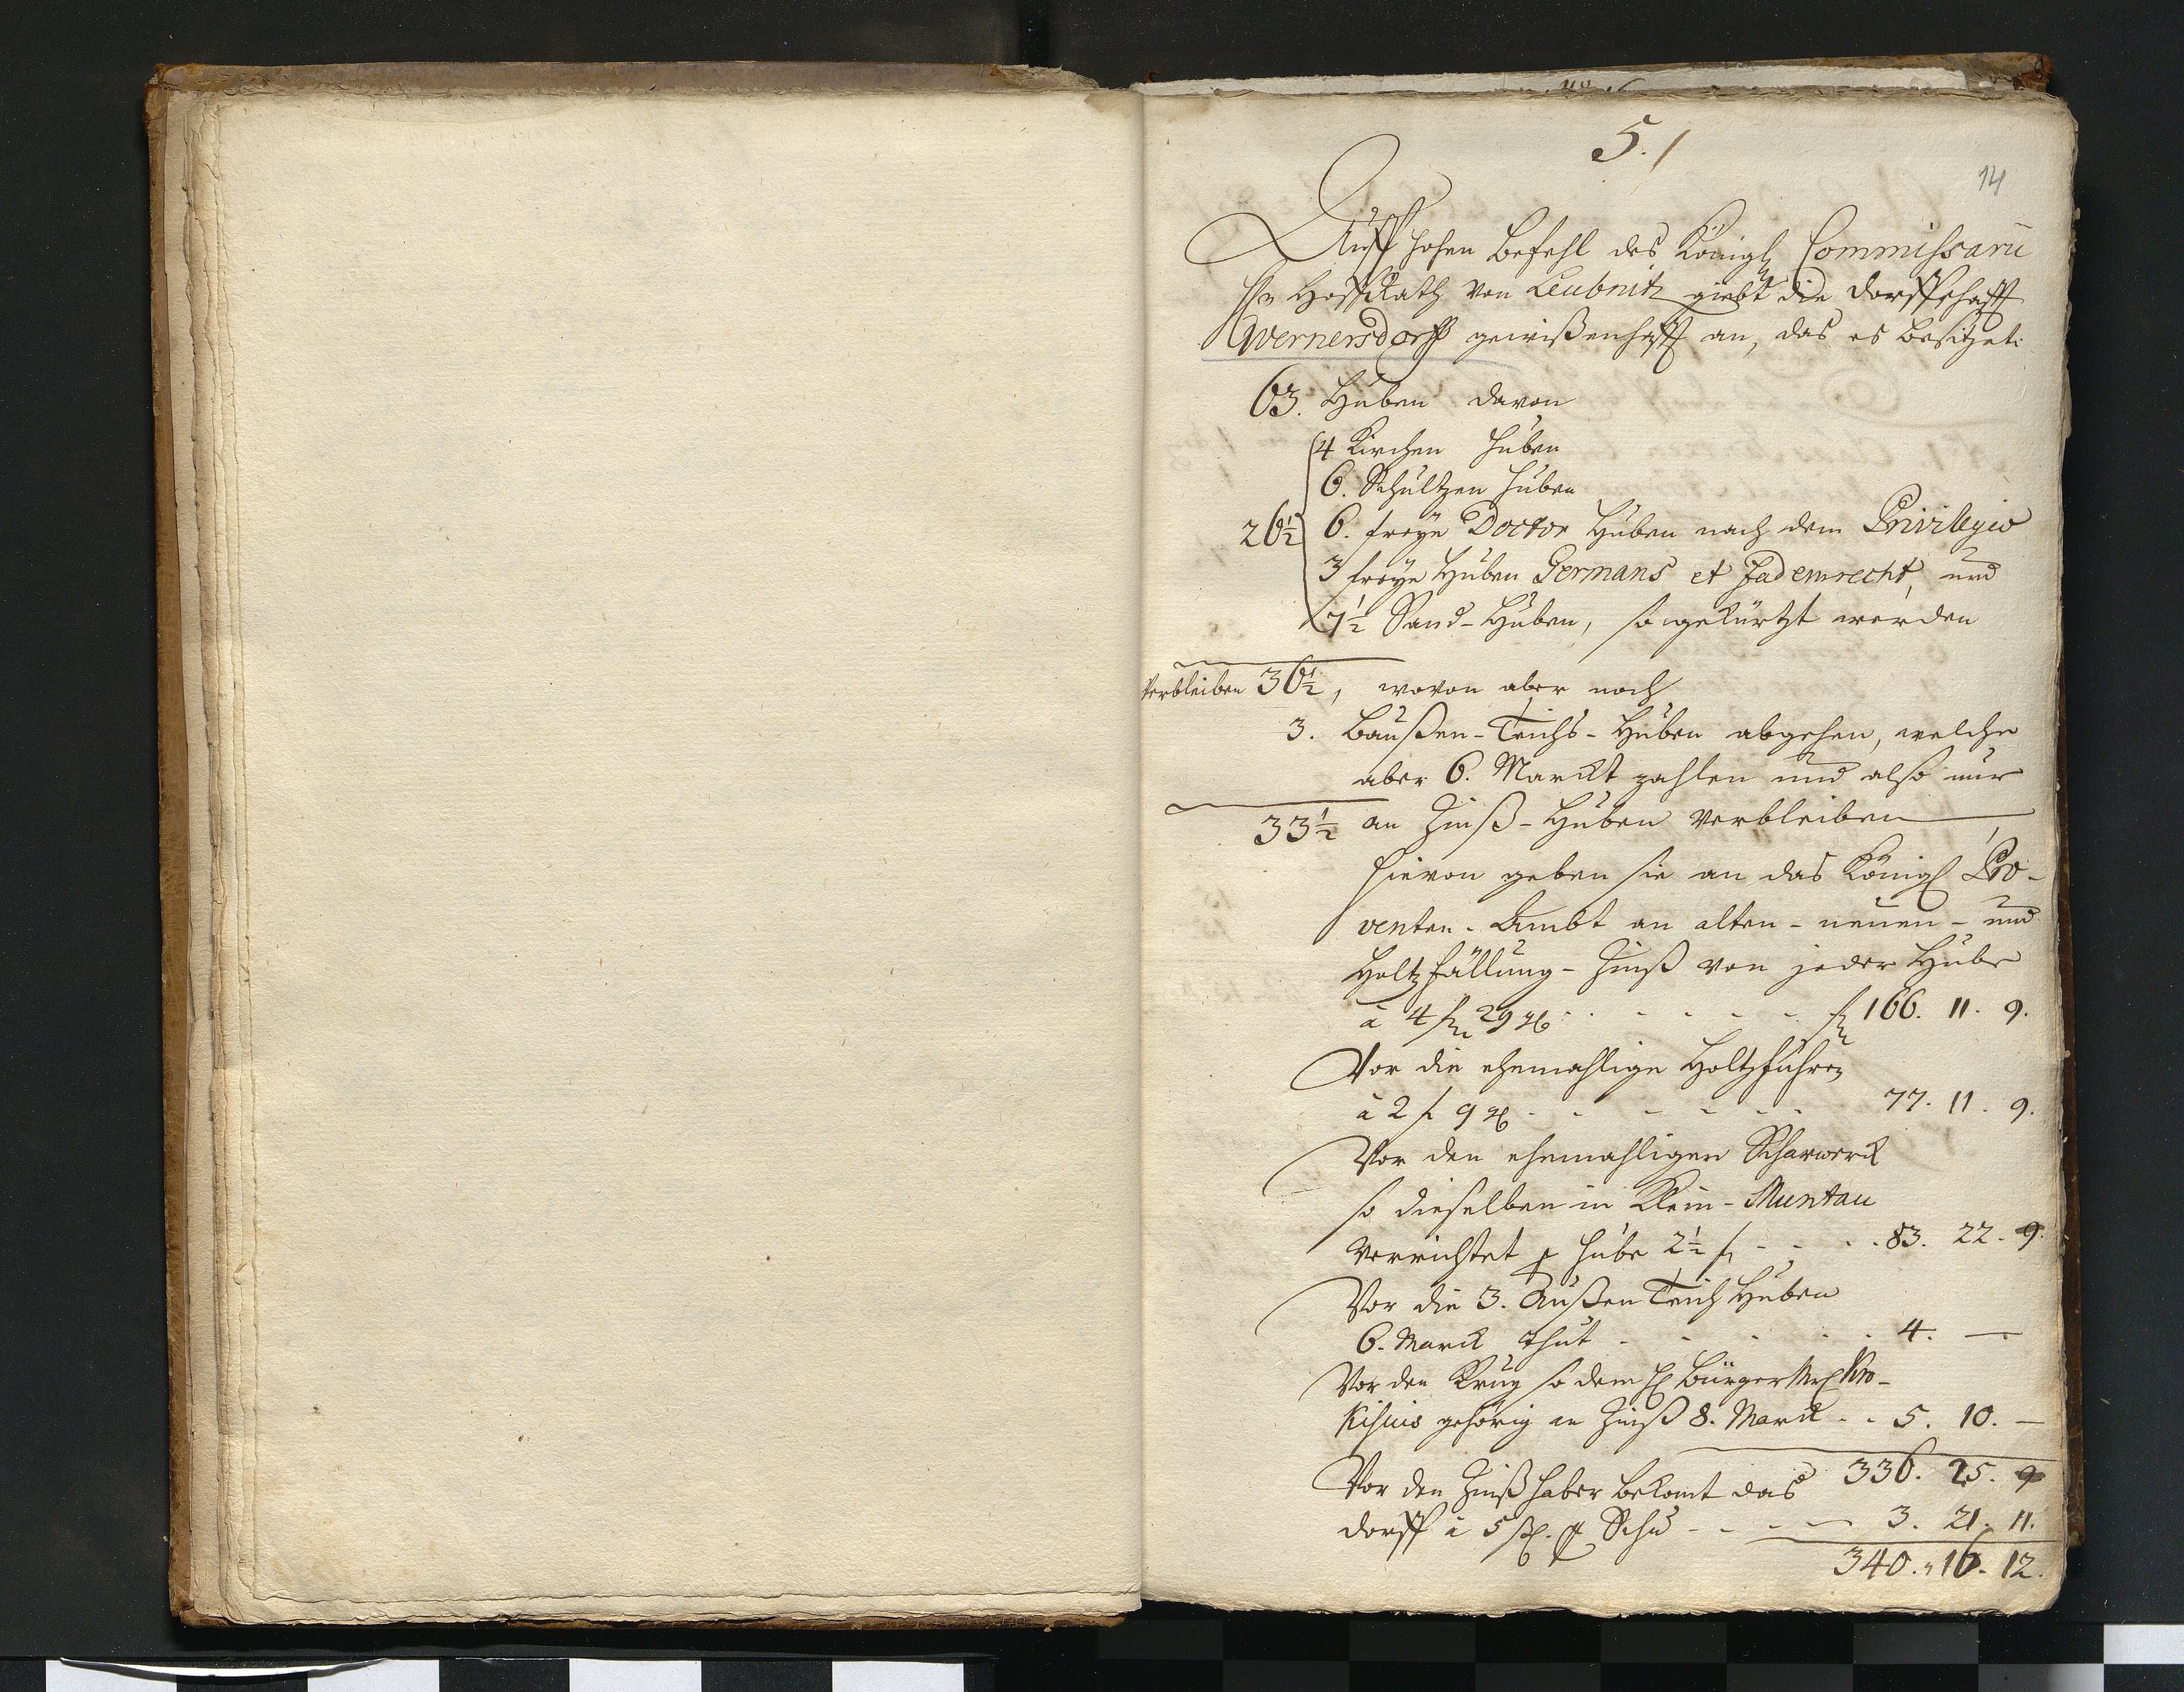 5./
14
Auff hohen Befehl des Königl Commissarii
Hn HoffRath von Leubnitz giebt die Dorffschafft
Wernersdorff gewißenhafft an, das es besitzet:
63. Huben davon
4 Kirchen Huben
6. Schultzen Huben
26½ 6. freye Doctor Huben nach dem Privilegio
3 freye Huben Germans et Fademrecht, und
7½ Sand-Huben, so gekürtzt werden
Verbleiben 36½, wovon aber noch
3. Baußen-Teichs-Huben abgehen, welche
aber 6. Marckt zahlen und also nur
33½ an Zinß-Huben verbleiben
hievon geben sie an das Königl Pro-
venten-Ambt an alten- neuen- und
Holtzfällung-Zinß von jeder Hube
à 4 f 29 g - - - - - f 166. 11. 9.
Vor die ehemahlige Holtzfuhren
à 2 f 9 g - - - - - 77. 11. 9.
Vor den ehemahligen Scharwerck
so dieselben in Klein-Muntau
verrichtet p Hube 2½ f - - - 83. 22. 9.
Vor die 3. Außen Teich Huben
6. Marck thut - - - - - 4. —
Vor den Krug so dem H BürgerMr
gehörig an Zinß 8. Marck - - 5. 10. —
336. 25. 9
Vor den Zinßhaber bekomt das
Dorff à 5 p Schd - - - — 3. 21. 11.
340. 16. 12.